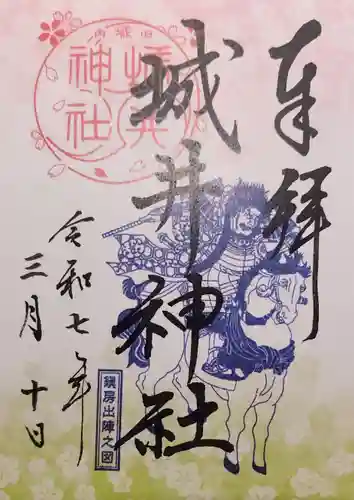 奉拝
城井神社
令和七年
三月十日
鎮房出陣之図
城井
神社